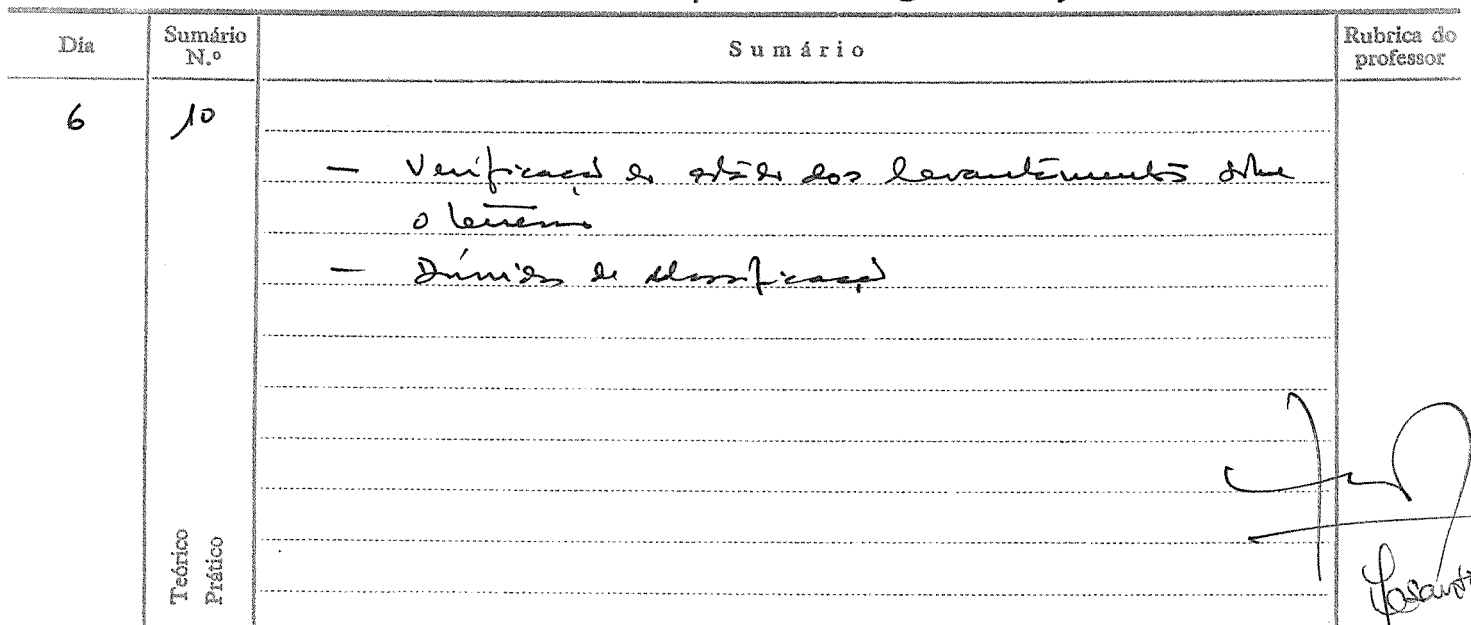 Dia Sumário N.º Sumário Rubrica do professor
6 10
— Verificação do estado dos levantamentos sobre
o terreno
— de classificação
Teórico
Prático